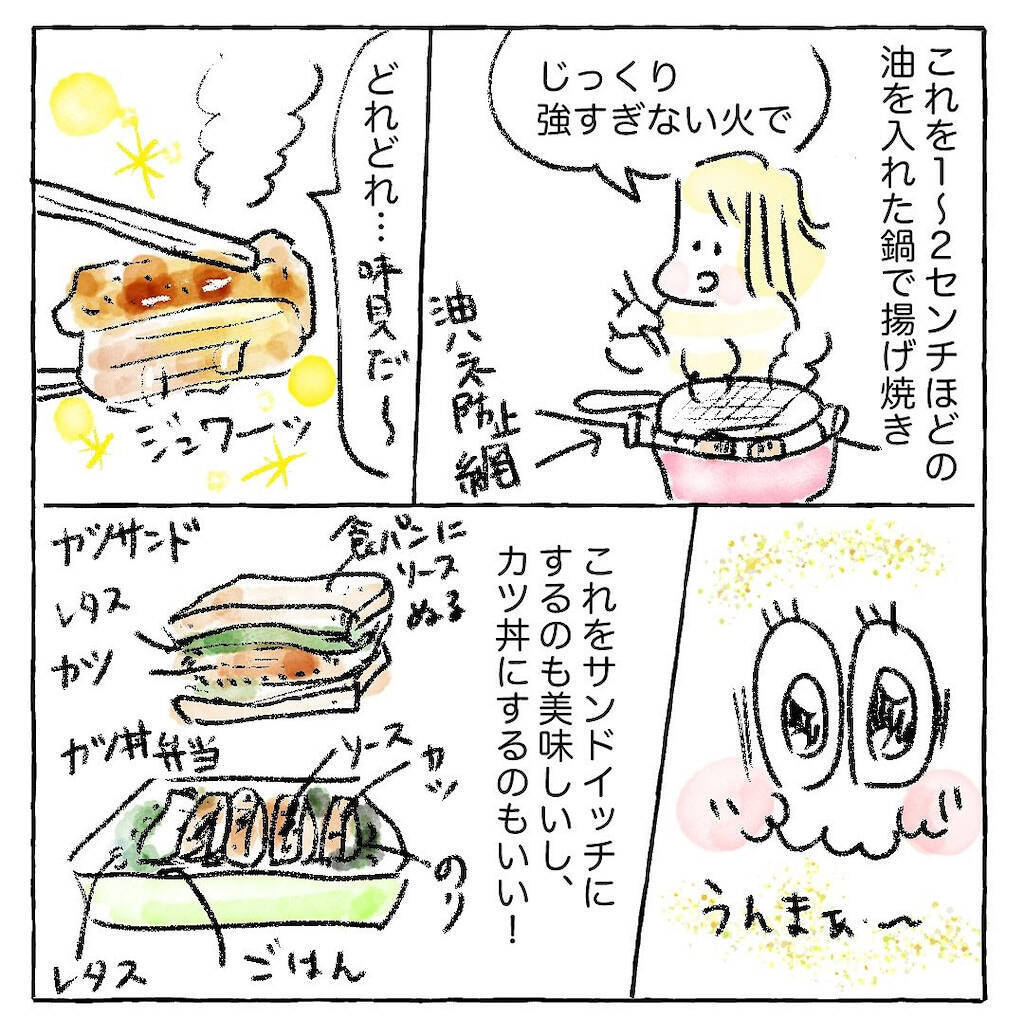 これを1〜2センチほどの
油を入れた鍋で揚げ焼き
じっくり
強すぎない火で
油ハネ
防止
網
どれどれ…味見だ〜
ジュワーッ
うんまぁ〜
これをサンドイッチに
するのも美味しいし、
カツ丼にするのもいい！
カツサンド
食パンに
ソース
ぬる
レタス
カツ
カツ丼弁当
ソース
カツ
のり
レタス
ごはん